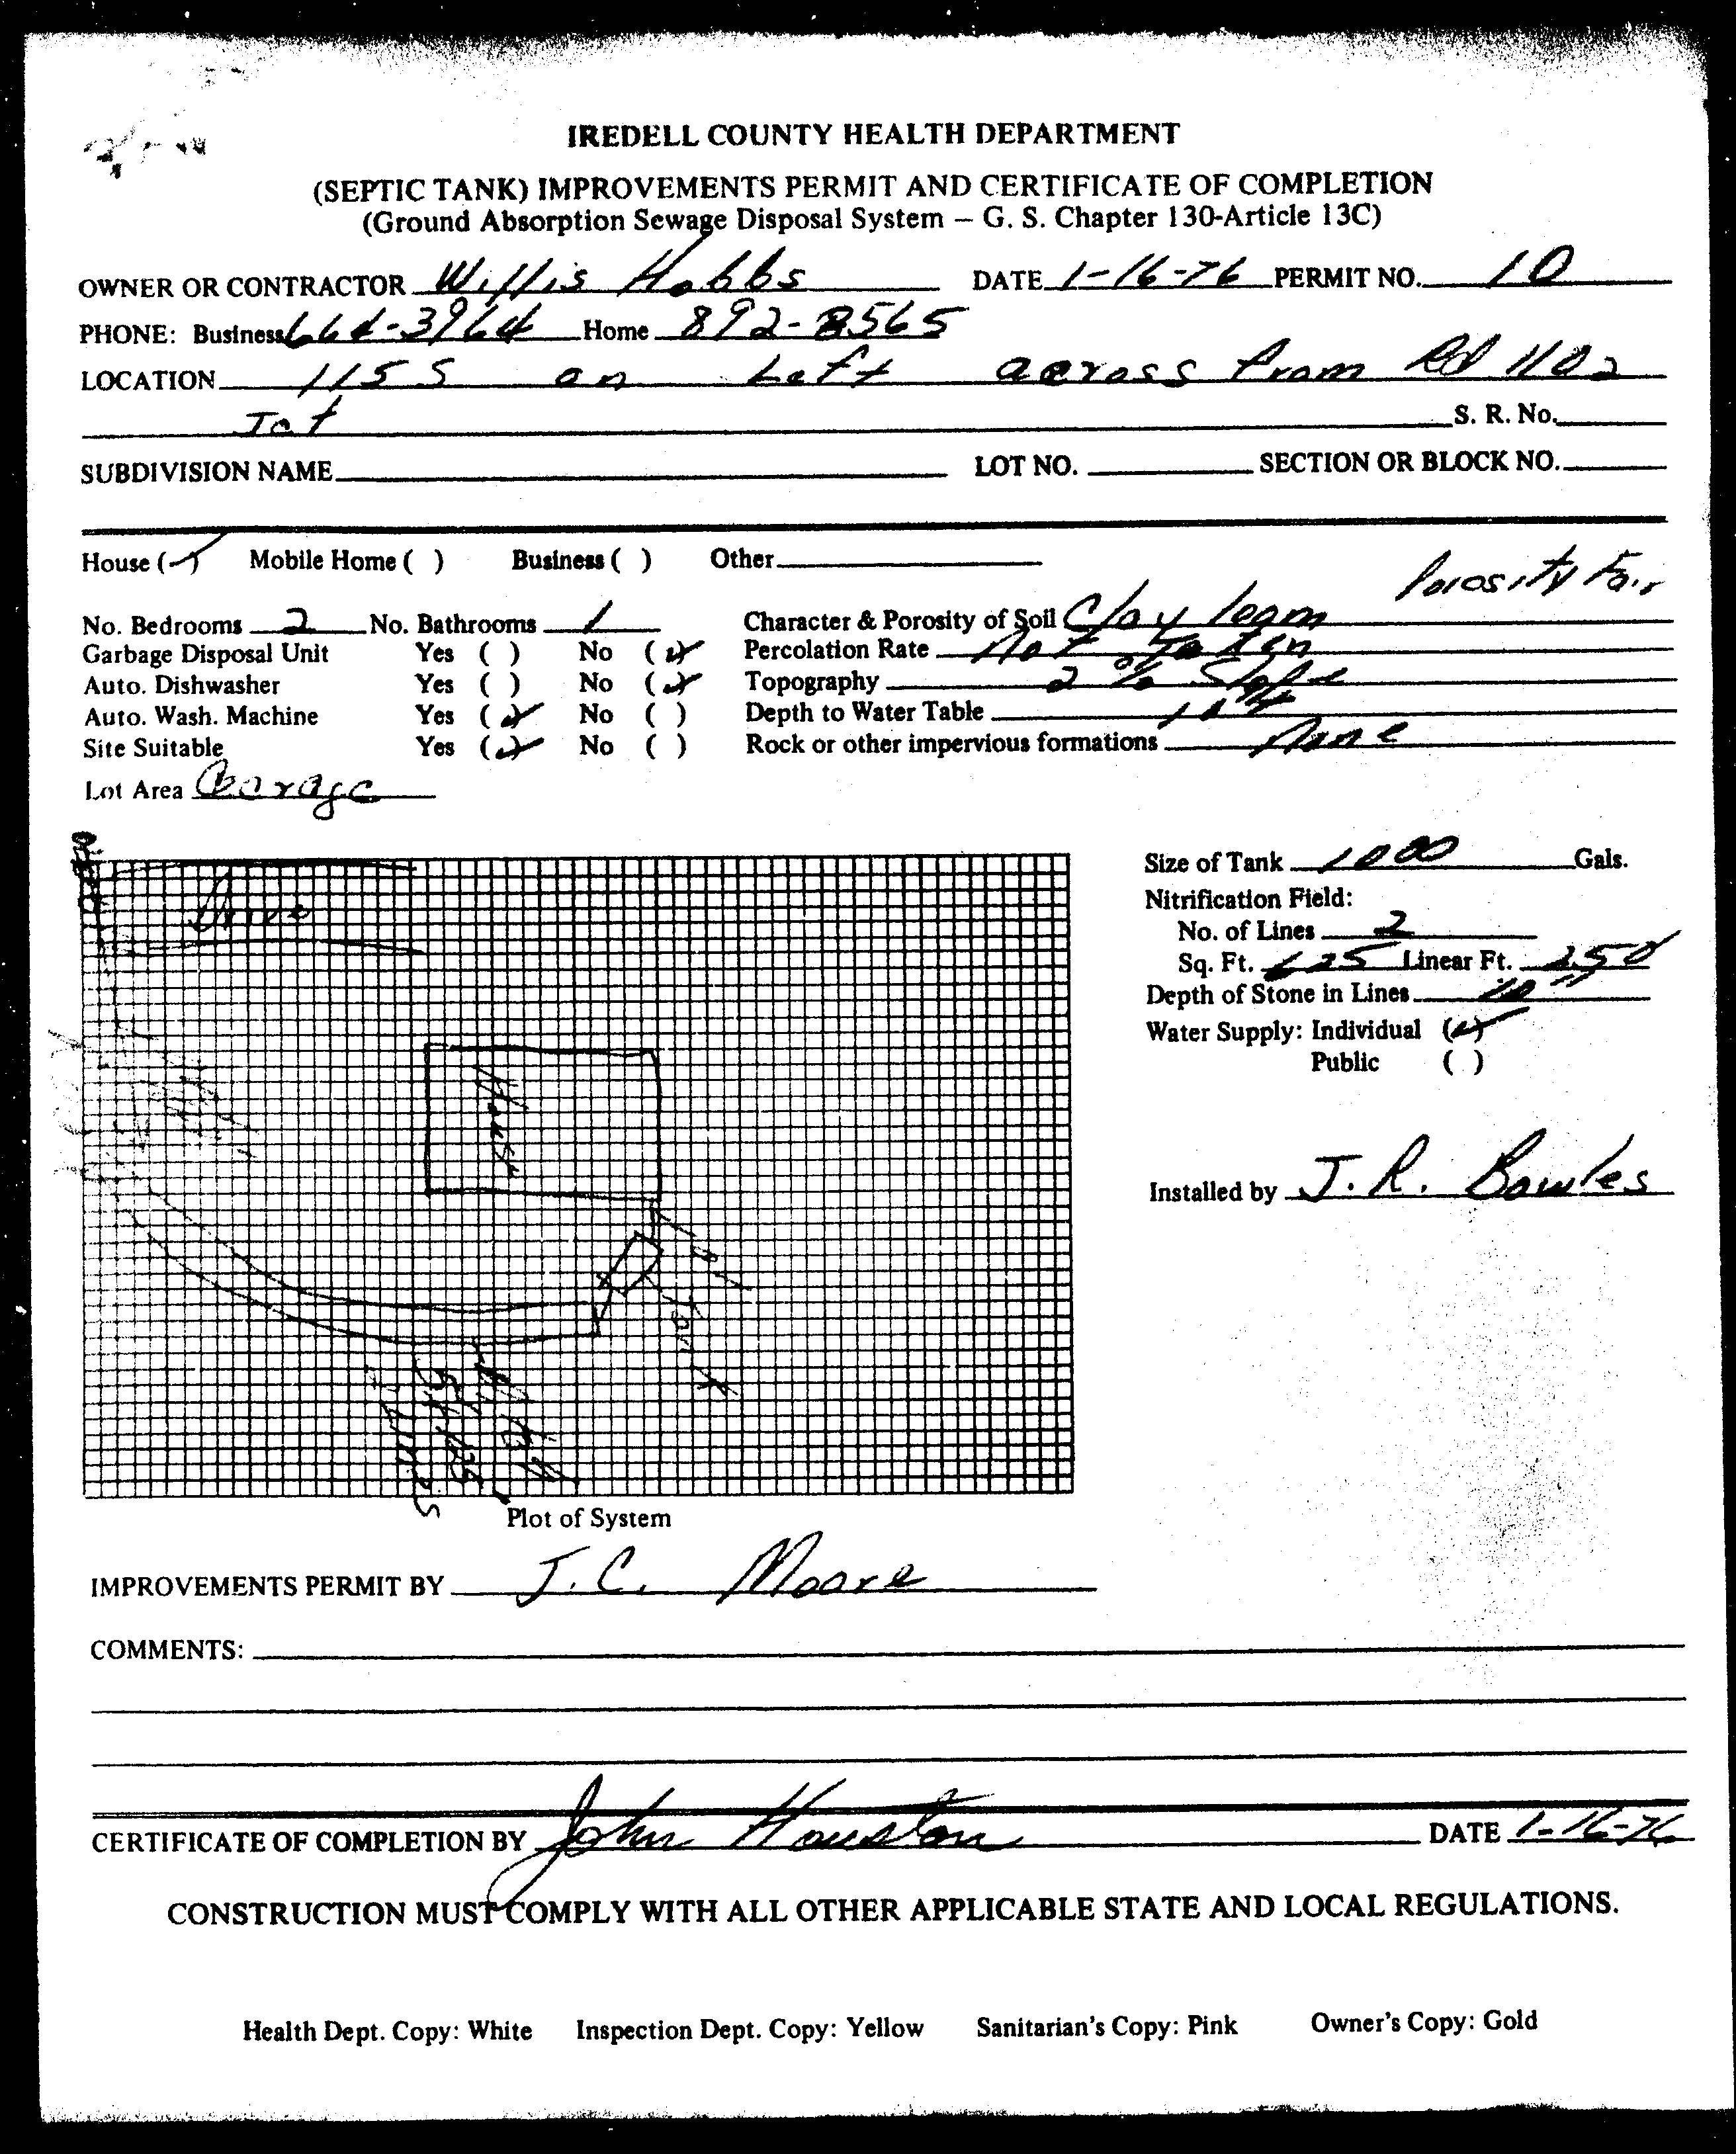 IREDELL COUNTY HEALTH DEPARTMENT
(SEPTIC TANK) IMPROVEMENTS PERMIT AND CERTIFICATE OF COMPLETION
(Ground Absorption Sewage Disposal System – G. S. Chapter 130-Article 13C)
OWNER OR CONTRACTOR Willis Hobbs DATE 1-16-76 PERMIT NO. 10
PHONE: Business 664-3964 Home 892-8565
LOCATION 115 S on Left across from Rd 1102
Jct S. R. No.
SUBDIVISION NAME LOT NO. SECTION OR BLOCK NO.
House (✓) Mobile Home ( ) Business ( ) Other
Porosity Fair
No. Bedrooms 2 No. Bathrooms 1 Character & Porosity of Soil Clay loam
Garbage Disposal Unit Yes ( ) No (✓) Percolation Rate Not Taken
Auto. Dishwasher Yes ( ) No (✓) Topography 2 % Slope
Auto. Wash. Machine Yes (✓) No ( ) Depth to Water Table
Site Suitable Yes (✓) No ( ) Rock or other impervious formations None
Lot Area
Size of Tank 1000 Gals.
Nitrification Field:
No. of Lines 2
Sq. Ft. 625 Linear Ft. 250
Depth of Stone in Lines
Water Supply: Individual (✓)
Public ( )
Installed by J. R. Bowles
Drive
House
Plot of System
IMPROVEMENTS PERMIT BY J. C. Moore
COMMENTS:
CERTIFICATE OF COMPLETION BY John Houston DATE 1-16-76
CONSTRUCTION MUST COMPLY WITH ALL OTHER APPLICABLE STATE AND LOCAL REGULATIONS.
Health Dept. Copy: White Inspection Dept. Copy: Yellow Sanitarian's Copy: Pink Owner's Copy: Gold